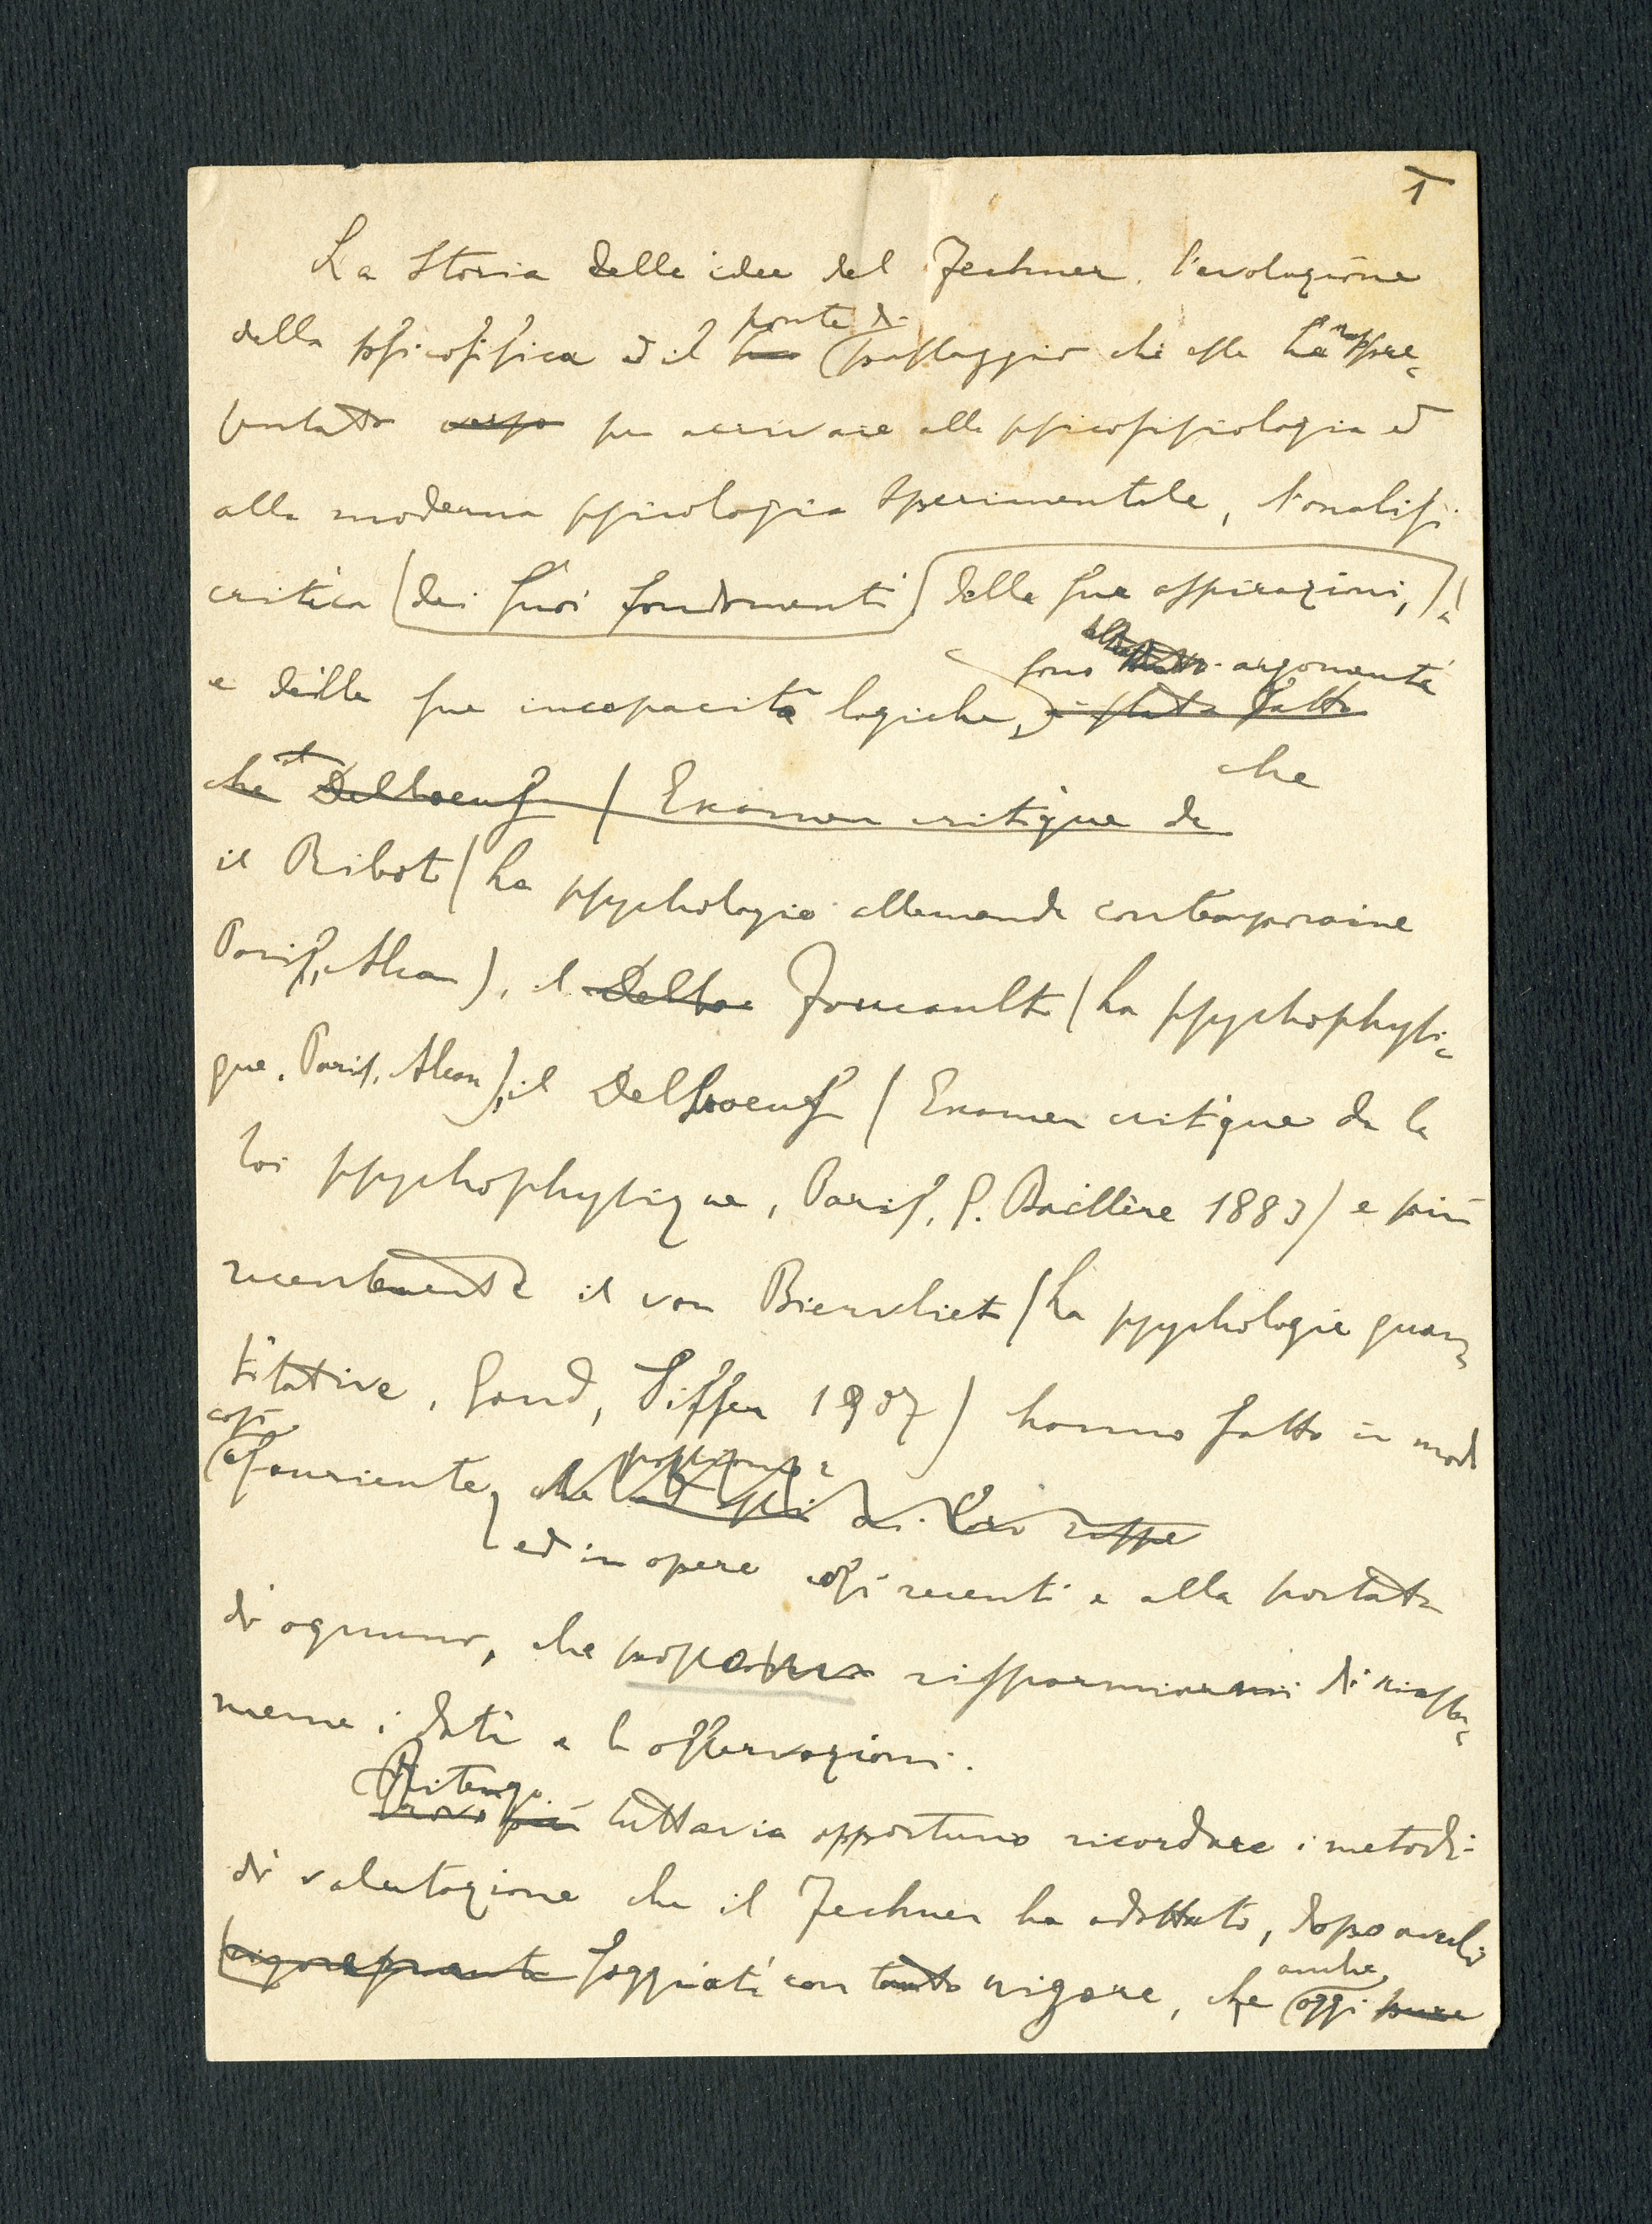 1
La Storia delle idee del Fechner, l'evoluzione
della psicofisica ed il ponte di passaggio che essa ha rappre-
sentato verso per arrivare alla psicofisiologia ed
alla moderna psicologia sperimentale, l'analisi
critica (dei suoi fondamenti) delle sue aspirazioni,
e delle sue incapacità logiche, è stata fatta sono argomenti
che
che il Delboeuf (Examen critique de
il Ribot (La psychologie allemande contemporaine
Paris, Alcan), il Delboe Foucault (La psychophysi-
que. Paris, Alcan), il Delboeuf (Examen critique de la
loi psychophysique, Paris, G. Baillère 1883) e più
recentemente il van Biervliet (La psychologie quan-
titative, Gand, Siffer 1907) hanno fatto in modo
così esauriente, che possono ad essi
ed in opere così recenti e alla portata
di ognuno, che risparmiarmi di riassu-
mere i dati e le osservazioni.
Ritengo Trovo più tuttavia opportuno ricordare i metodi
di valutazione che il Fechner ha adottato, dopo averli
foggiati con tanto rigore, che anche oggi pure